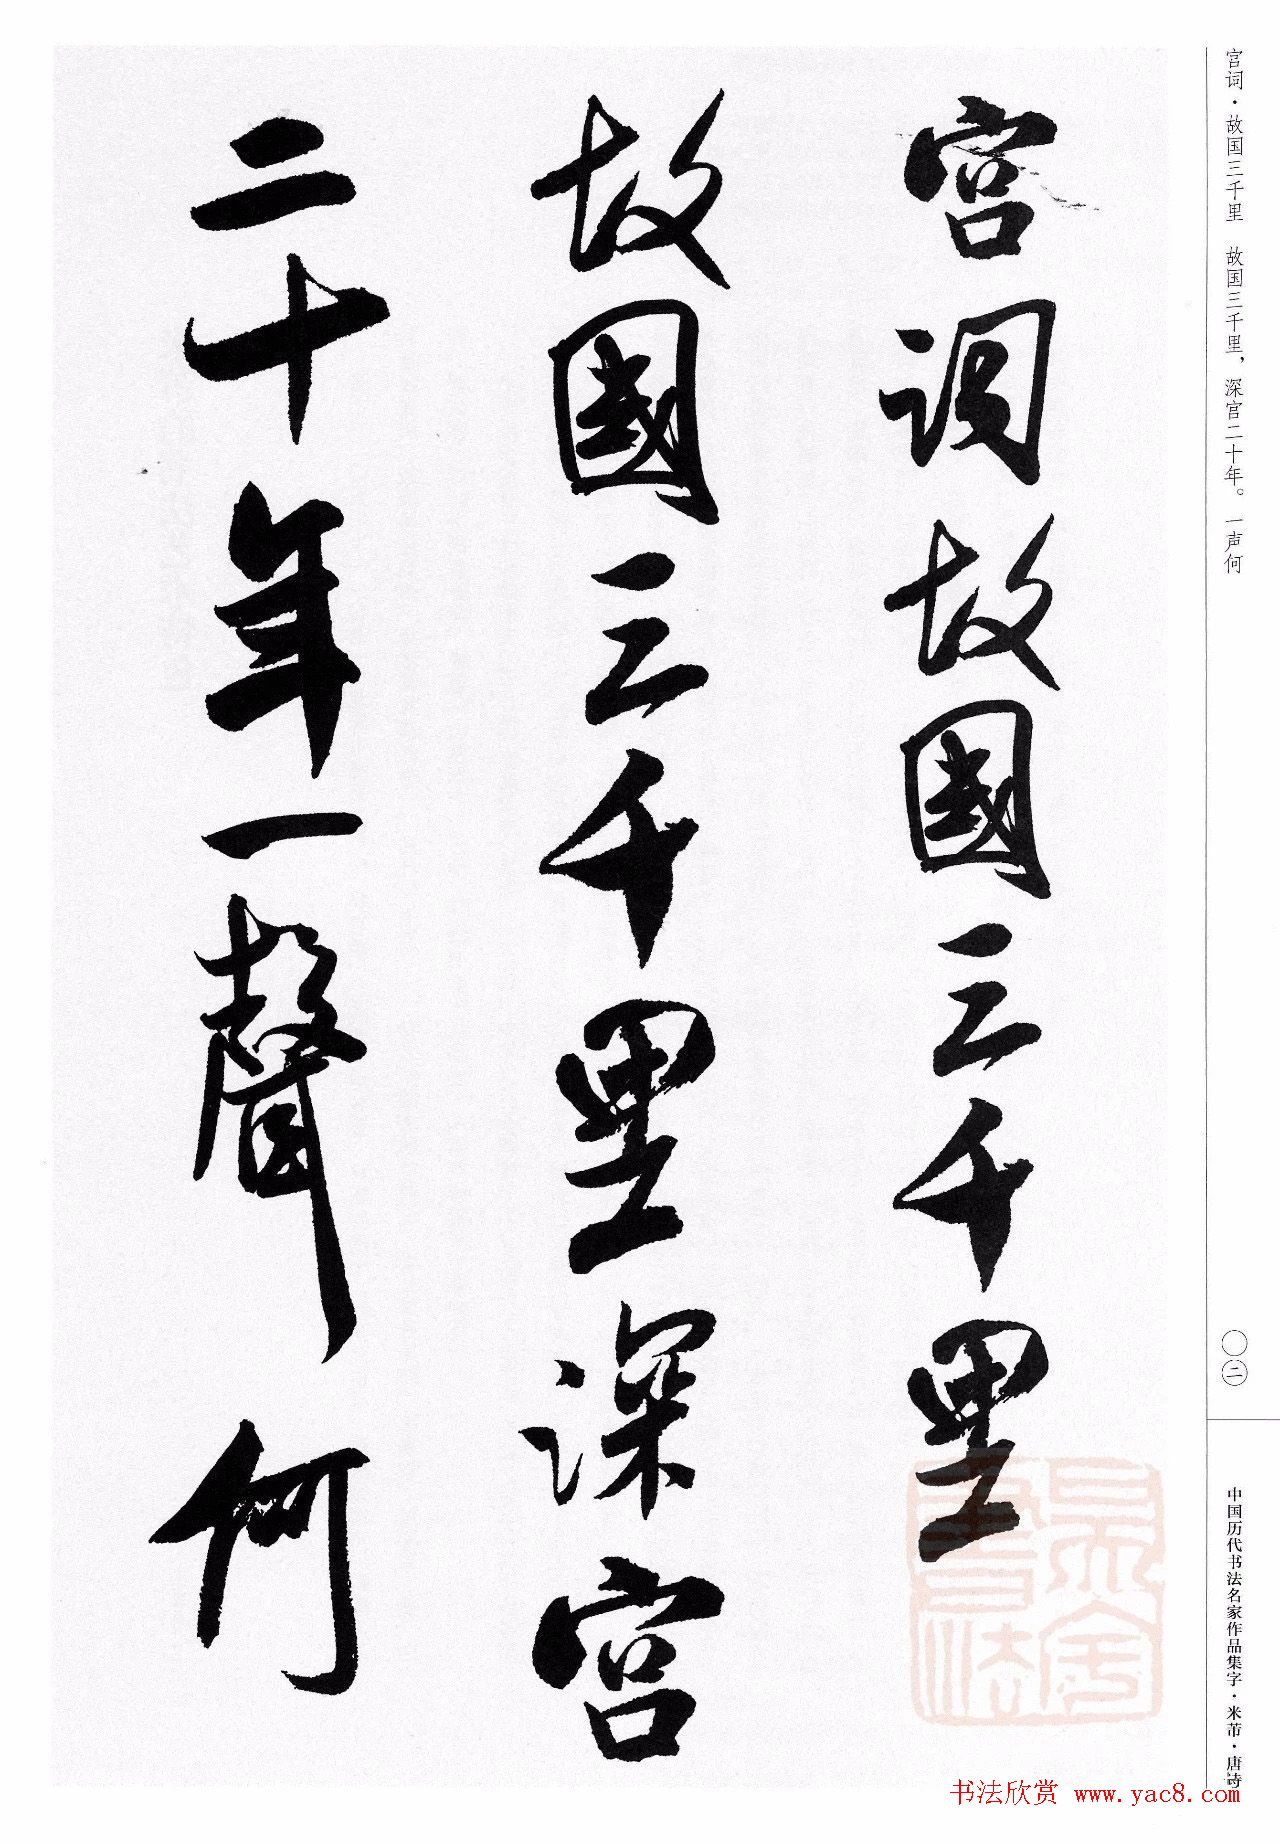 宫词·故国三千里　故国三千里，深宫二十年。一声何
宮詞故國三千里
故國三千里深宮
二十年一聲何
〇二
中国历代书法名家作品集字·米芾·唐诗
书法欣赏 www.yac8.com